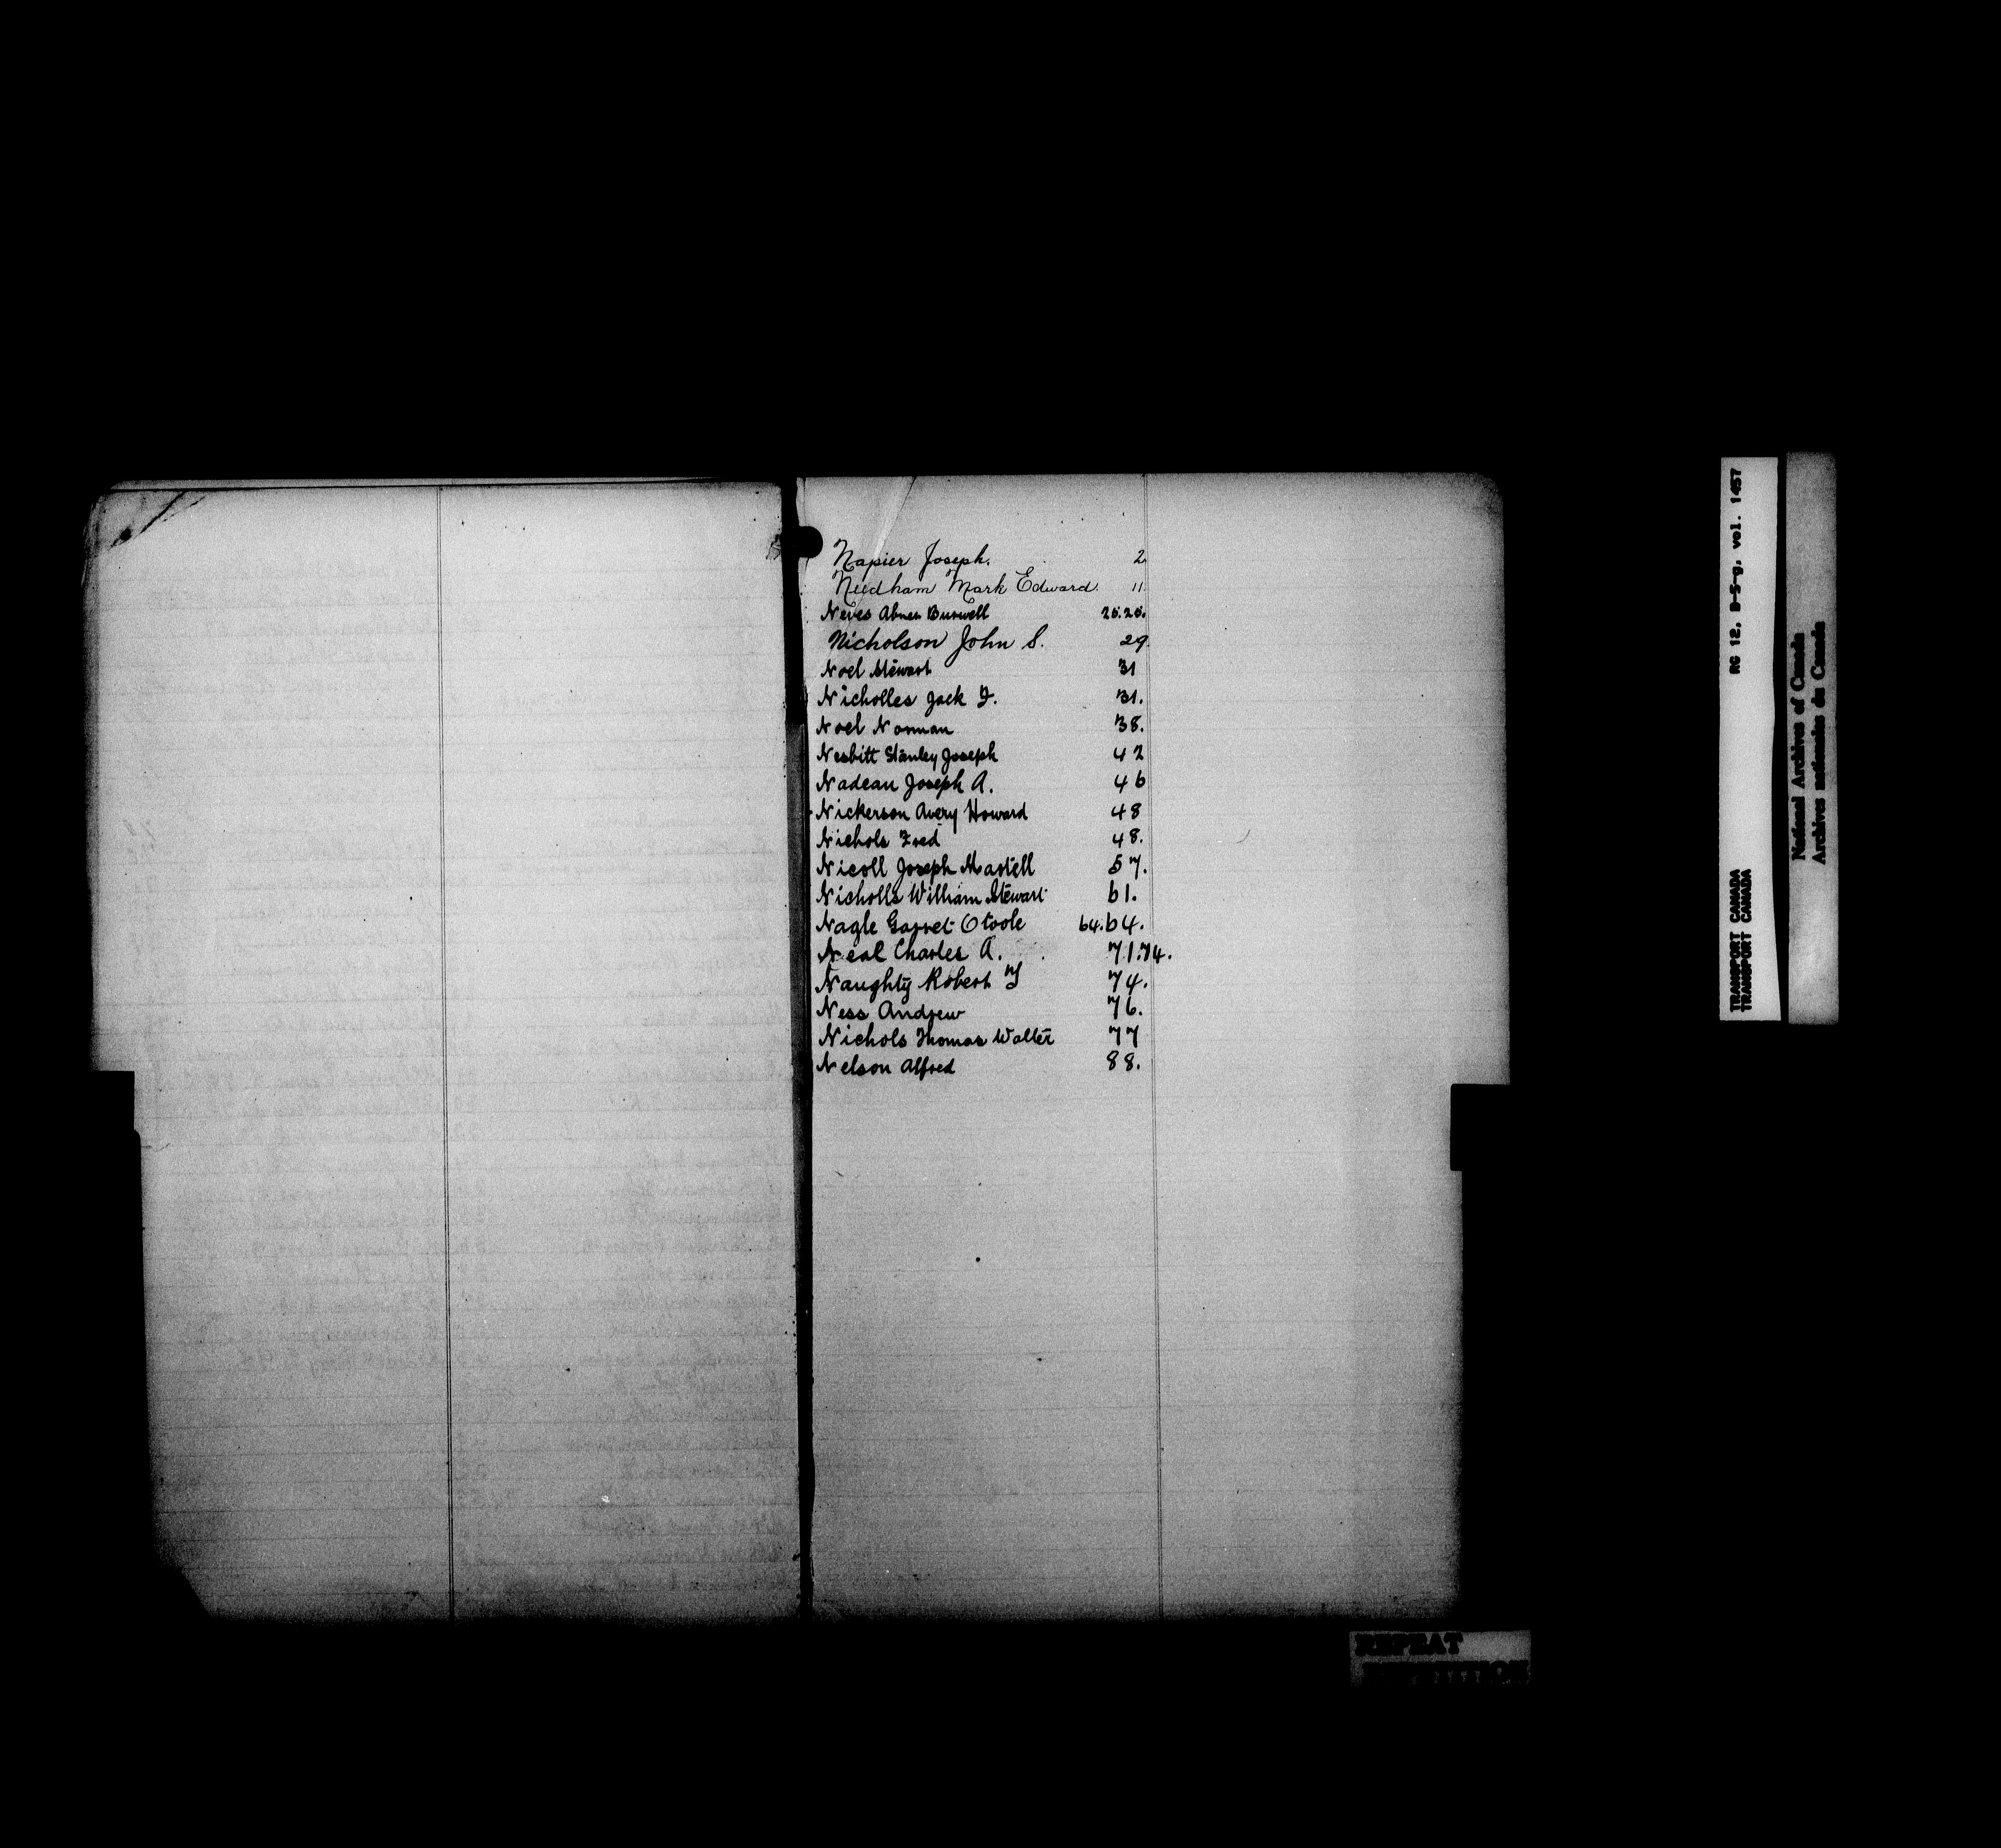 Napier Joseph. 2
Needham Mark Edward. 11.
Neves Abner Burwell 25.25.
Nicholson John S. 29.
Noel Stewart 31
Nicholles Jack 31.
Noel Norman 38.
Nesbitt Stanley Joseph 42
Nadeau Joseph A. 46
Nickerson Avery Howard 48
Nichols Fred 48.
Nicoll Joseph Martell 57.
Nicholls William Stewart 61.
Nagle Garret Otoole 64.64.
Neal Charles A. 71.74.
Naughty Robert 74.
Ness Andrew 76.
Nichols Thomas Walter 77
Nelson Alfred 88.
RG 12, B-5-g, vol. 1457
TRANSPORT CANADA
TRANSPORT CANADA
National Archives of Canada
Archives nationales du Canada
REPEAT